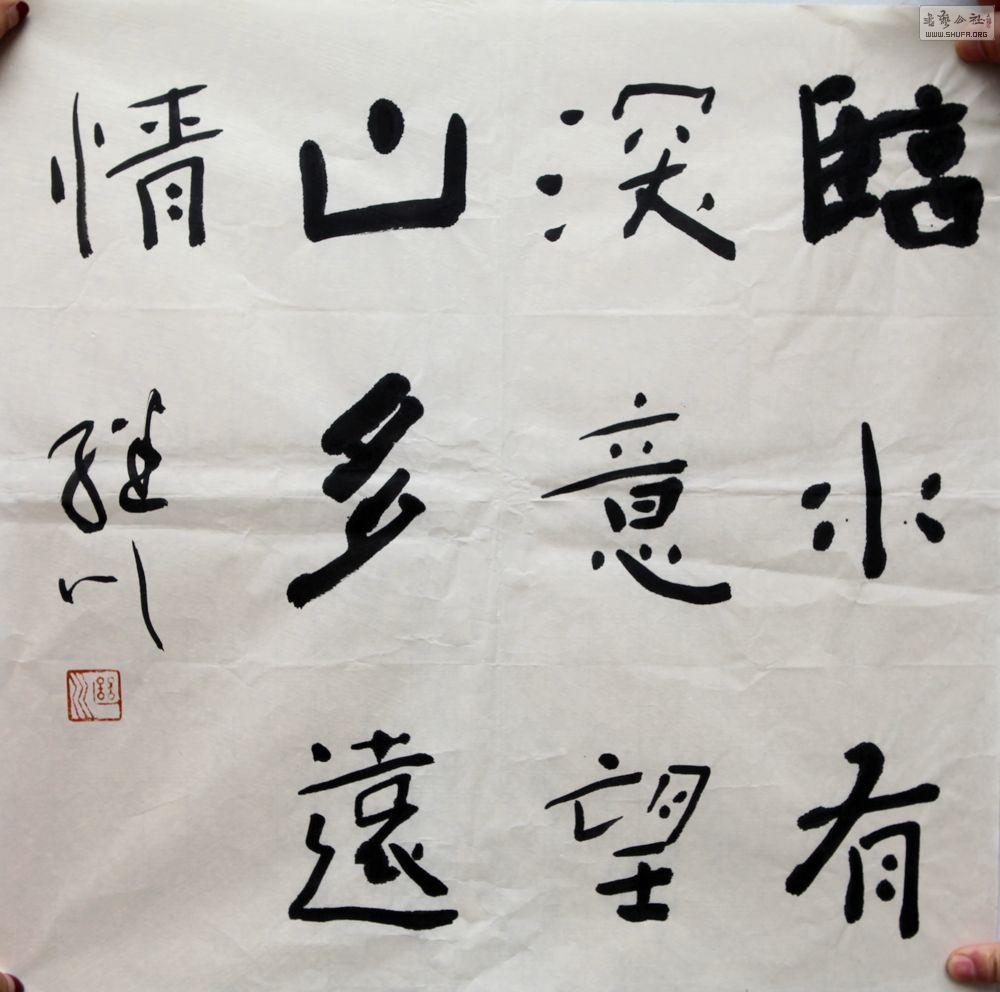 臨水有
深意望
山多遠
情
川
書藝公社
WWW.SHUFA.ORG